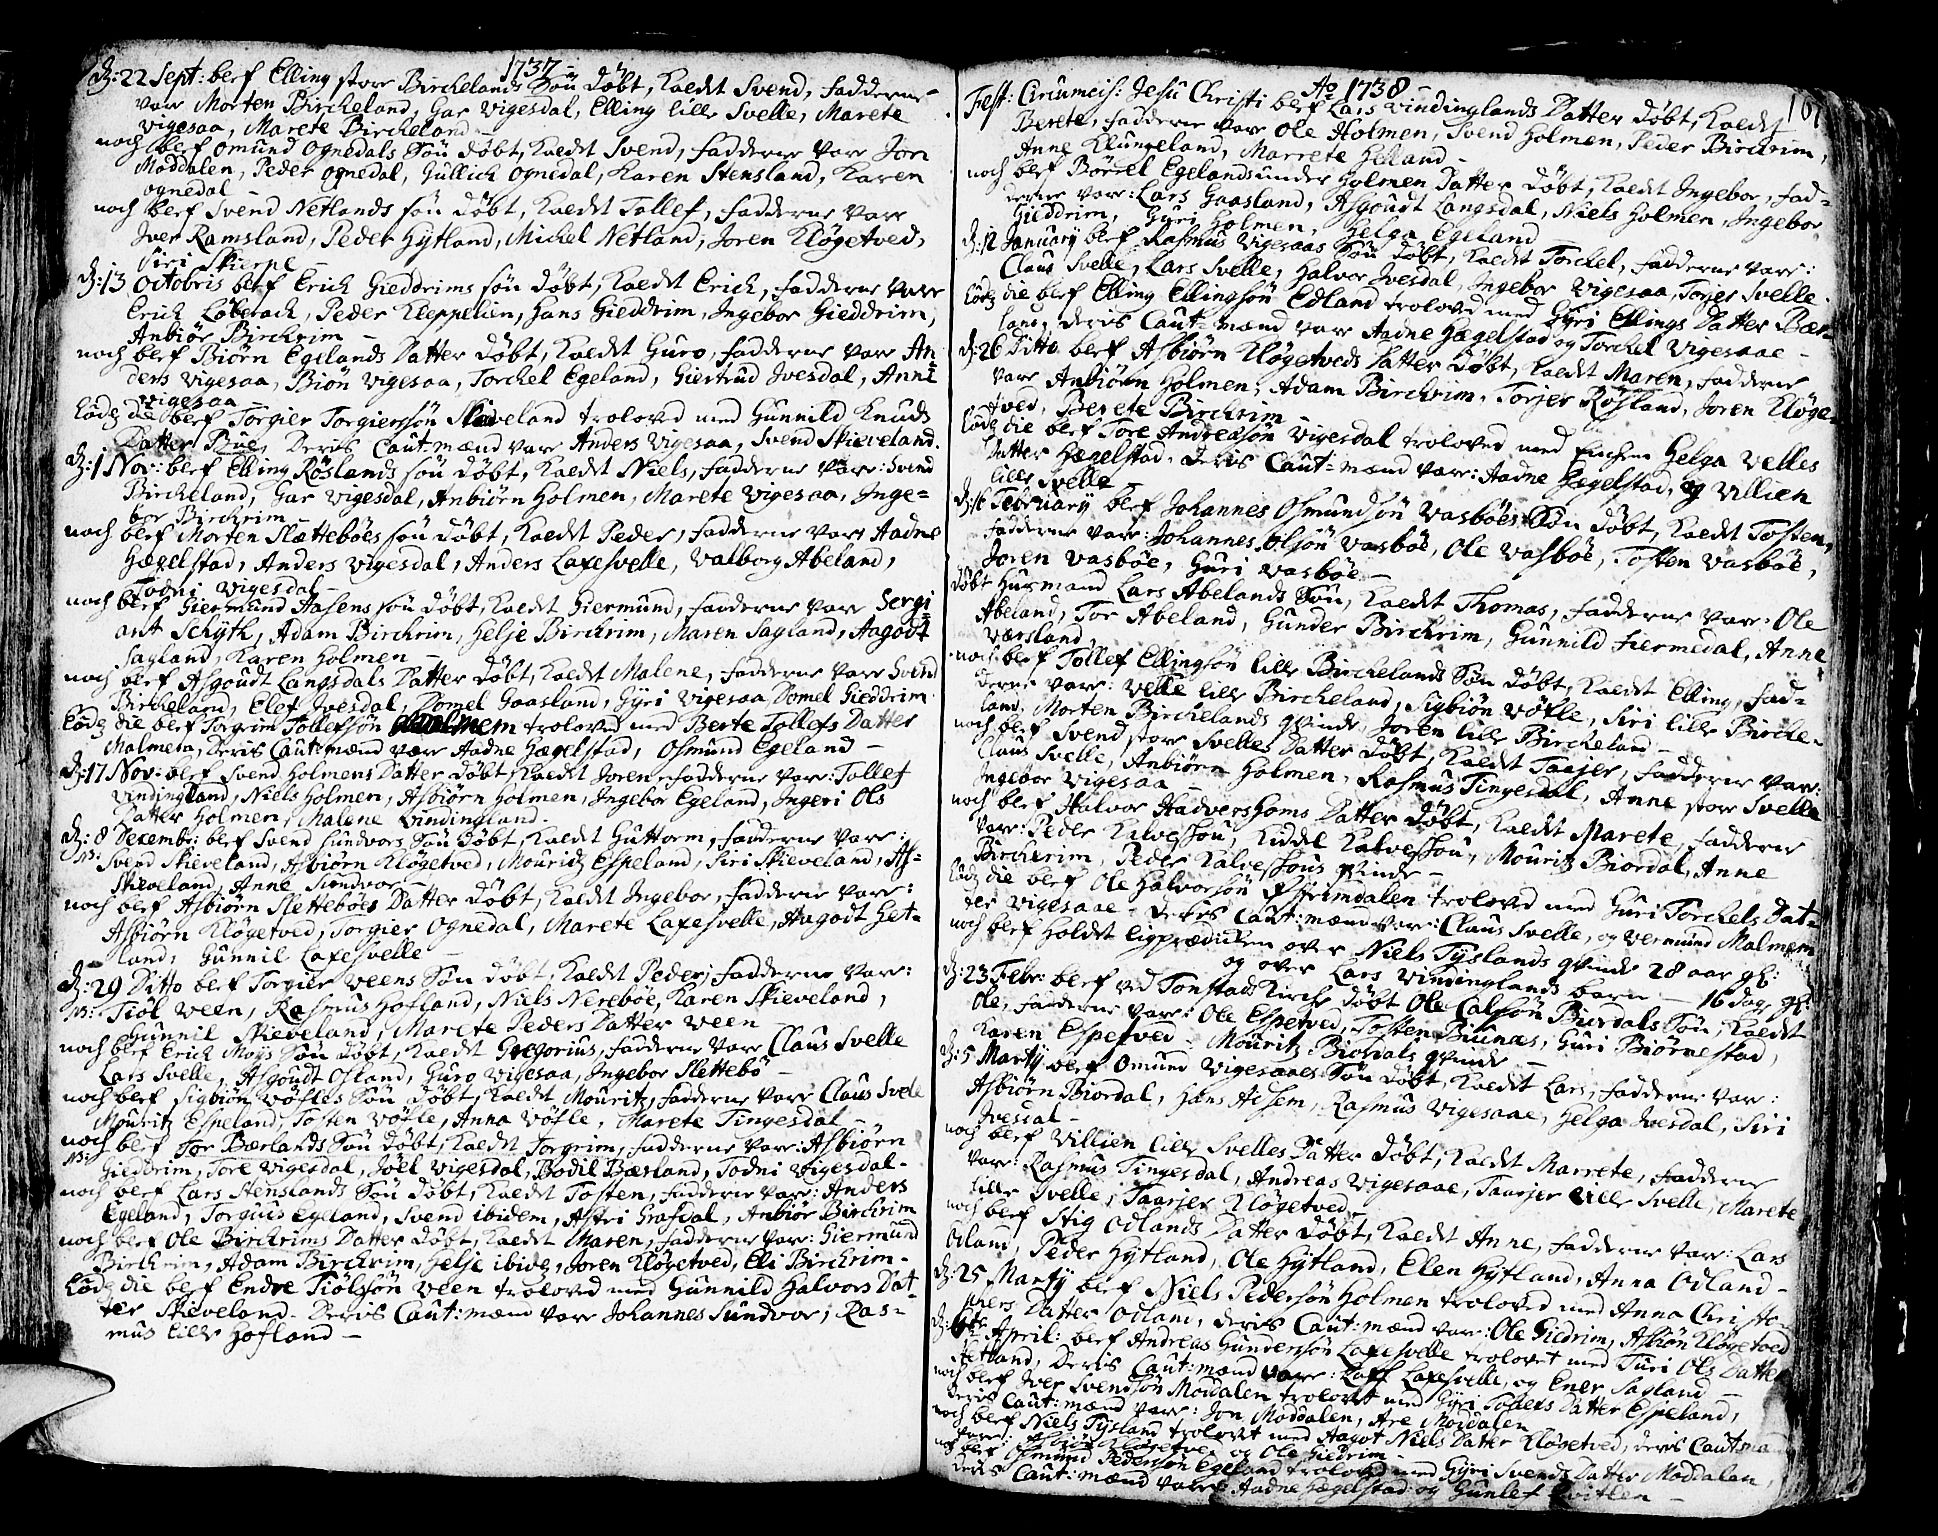 1737
d: 22 Sept: blef Elling store Birchelands Søn døbt, kaldt Svend, fadderne
vare Morten Bircheland, Gar Vigesdal, Elling lille Svelle, Marete
Vigesaa, Marete Bircheland –
noch blef Omund Ognedals Søn døbt, kaldt Svend, fadderne vare Jon
Moddalen, Peder Ognedal, Gullich Ognedal, Karen Stensland, Karen
Ognedal –
noch blef Svend Netlands søn døbt, kaldt Tollef, fadderne vare
Iver Ramsland, Peder Hytland, Michel Netland, Joren Kløgetved,
Siri Skierpe –
d: 13 Octobris blef Erich Gieddrims søn døbt, kaldt Erich, fadderne vare
Erich Løbebach, Peder Kleppelien, Hans Gieddrim, Ingebor Gieddrim,
Anbiør Birchrim –
noch blef Biørn Egelands Datter døbt, kaldt Guro, fadderne vare An
ders Vigesaa, Biøn Vigesaa, Torchel Egeland, Giertrud Ivesdal, Anne
Vigesaa –
Eodem die blef Torgier Torgiersøn Skieveland trolovd med Gunnild Knuds
Datter Bue, Deris Caut: mænd vare Anders Vigesaa, Svend Skieveland.
d: 1 Nov: blef Elling Røslands søn døbt, kaldt Niels, fadderne vare: Svend
Bircheland, Gar Vigesdal, Anbiørn Holmen, Marete Vigesaa, Inge=
bor Birchrim –
noch blef Morten Slettebøes søn døbt, kaldt Peder, fadderne vare Aadne
Hægelstad, Anders Vigesdal, Anders Laxesvelle, Valborg Abeland,
Todni Vigesdal –
noch blef Giermund Hasens søn døbt, kaldt Giermund, fadderne vare Sergi
ant Schyth, Adam Birchrim, Helje Birchrim, Maren Sagland, Aagodt
Sagland, Karen Holmen –
noch blef Asgoudt Langsdals Datter døbt, kaldt Malene, fadderne vare Svend
Bircheland, Elef Ivesdal, Domel Gaasland, Gyri Vigesaa, Domel Gieddrim
Eodem die blef Torgrim Tollefsøn Malmem trolovd med Berte Tollefs Datter
Malmem, Deris Caut: mænd vare Aadne Hægelstad, Osmund Egeland –
d: 17 Nov: blef Svend Holmens Datter døbt, kaldt Joren, fadderne vare: Tollef
Vindingland, Niels Holmen, Asbiørn Holmen, Ingebor Egeland, Ingeri Ols
Datter Holmen, Malene Vindingland.
d: 8 Decembr: blef Svend Sundvors Søn døbt, kaldt Guttorm, fadderne vare:
Svend Skieveland, Asbiørn Kløgetved, Mouritz Espeland, Siri Skieveland, As-
Skieveland, Anne Sundvor –
noch blef Asbiørn Slettebøes Datter døbt, kaldt Ingebor, fadderne vare:
Asbiørn Kløgetved, Torgier Ognedal, Marete Laxesvelle, Aagodt Get=
land, Gunnil Laxesvelle –
d: 29 Ditto blef Torgier Veens Søn døbt, kaldt Peder, fadderne vare:
Tiøl Veen, Rasmus Hofland, Niels Nerebøe, Karen Skieveland,
Gunnil Skieveland, Marete Peders Datter Veen
noch blef Erich Moys Søn døbt, kaldt Gregorius, fadderne vare Claus Svelle
Lars Svelle, Asgoudt Osland, Guro Vigesaa, Ingebor Slettebø –
noch blef Sigbiøn Vøfles Søn døbt, kaldt Mouritz, fadderne vare Claus Svele
Mouritz Espeland, Tosten Vøfle, Anna Vøfle, Marete Tingesdal –
noch blef Tor Bærlands Søn døbt, kaldt Torgrim, fadderne vare: Asbiørn
Giedrim, Tore Vigesdal, Joel Vigesdal, Bodil Bærland, Todni Vigesdal.
noch blef Lars Stenslands Søn døbt, kaldt Tosten, fadderne vare: Anders
Egeland, Torguus Egeland, Svend ibidem, Astri Grafdal, Anbiør Birchrim
noch blef Ole Birchrims Datter døbt, kaldt Maren, fadderne vare: Giermund
Birchrim, Adam Birchrim, Helje ibid:, Joren Kløgetved, Eli Birchrim.
Eodem die blef Endre Tiølsøn Veen trolovd med Gunnild Halvors Dat
ter Skieveland. Deris Caut: mænd vare Johannes Sundvor, Ras=
mus lille Hofland –
Ao 1738
Fest: Circumcis: Jesu Christi blef Lars Vindinglands Datter døbt, kaldt
Berete, fadderne vare Ole Holmen, Svend Holmen, Peder Birchrim,
Anne Klungeland, Marrete Helland –
noch blef Børrel Egelands under Holmen Datter døbt, kaldt Ingebor, fad=
derne vare: Lars Gaasland, Asgoudt Langsdal, Niels Holmen, Ingebor
Gieddrim, Gyri Holmen, Helga Egeland
d: 12 January blef Rasmus Vigesaas Søn døbt, kaldt Torchel, fadderne vare:
Claus Svelle, Lars Svelle, Halvor Ivesdal, Ingebor Vigesaa, Torjer Svelle.
Eodem die blef Elling Ellingsøn Edland trolovd med Gyri Ellings Datter Bær=
land, Deris Caut: mænd vare Aadne Hægelstad og Torchel Vigesaae –
d: 26 Ditto blef Asbiørn Kløgetveds Datter døbt, kaldt Maren, fadderne
vare Anbiørn Holmen, Adam Birchrim, Torjer Røsland, Joren Kløge=
tved, Berete Birchrim –
Eodem die blef Tore Andreasøn Vigesdal trolovd med Enchen Helga Velles
Datter Hægelstad. Deris Caut: mænd vare: Aadne Hægelstad, og Villien
lille Svelle –
d: 16 February blef Johannes Osmundsøn Vasbøes Søn døbt, kaldt Tosten,
fadderne vare: Johannes Olsøn Vasbøe, Ole Vasbøe, Tosten Vasbøe,
Joren Vasbøe, Guri Vasbøe –
døbt Husmand Lars Abelands Søn, kaldt Thomas, fadderne vare: Ole
Abeland, Tor Abeland, Gunder Birchrim, Gunnild Fiermedal, Anne
Værsland
noch blef Tollef Ellingsøn lille Birchelands Søn døbt, kaldt Elling, fad=
derne vare: Velle lille Bircheland, Sigbiørn Vøfle, Siri lille Birche=
land, Morten Birchelands qvinde, Joren lille Bircheland –
noch blef Svend store Svelles Datter døbt, kaldt Taajer, fadderne vare:
Claus Svelle, Anbiørn Holmen, Rasmus Tingesdal, Anne store Svelle
Ingebor Vigesaa –
noch blef Halvor Hadvershoms Datter døbt, kaldt Marete, fadderne
vare: Peder Kalveshou, Kiddel Kalveshou, Mouritz Biordal, Anne
Birchrim, Peder Kalveshous qvinde –
Eodem die blef Ole Halvorsøn trolovd med Guri Torchels Dat=
ter Vigesaae. Deris Caut: mænd vare: Claus Svelle, og Vermund Malmem
noch blef holdt ligprædicken over Niels Tyslands qvinde 28 aar gl:
og over Lars Vindinglands barn – 16 dag gl:
d: 23 Febr: blef ved Tonstads Kirche døbt Ole Calssøn Biordals Søn, kaldt
Ole, fadderne vare: Ole Espetved, Tosten Biunæs, Guri Biørnestad,
Karen Espetved – Mouritz Biordals qvinde –
d: 5 Martij blef Omund Vigesaaes Søn døbt, kaldt Lars, fadderne vare:
Asbiørn Biordal, Hans Ádsem, Rasmus Vigesaae, Helga Ivesdal, Siri
Ivesdal –
noch blef Villien lille Svelles Datter døbt, kaldt Marrete, fadderne
vare: Rasmus Tingesdal, Andreas Vigesaae, Taarjer lille Svelle, Marete
lille Svelle, Taarjer Kløgetved –
noch blef Stig Odlands Datter døbt, kaldt Anne, fadderne vare: Lars
Odland, Peder Hytland, Ole Hytland, Elen Hytland, Anna Odland –
d: 25 Martij blef Niels Pedersøn Holmen trolovd med Anna Christo=
phers Datter Odland, deris Caut: mænd vare: Ole Giedrim, Asbiøn Kløgetved
April: blef Andreas Gundersøn Laxesvelle trolovet med Turi Ols Datter
Netland, Deris Caut: mænd vare: Laxesvelle, og Ener Sagland –
noch blef Iver Svendsøn Moddalen trolovet med Gyri Datter Espeland,
deris Caut: mænd vare: Jon Moddalen, Are Moddalen
noch blef Niels Tysland trolovt med Aagot Niels Datter Kløgetved, deris Cautmænd
vare: Asbiøn Kløgetved og Ole Giedrim –
noch blef Osmund Pedersøn Egeland trolovd med Gyri Svends Datter Moddalen,
deris Caut: mænd vare Aadne Hægelstad og Gunlef –